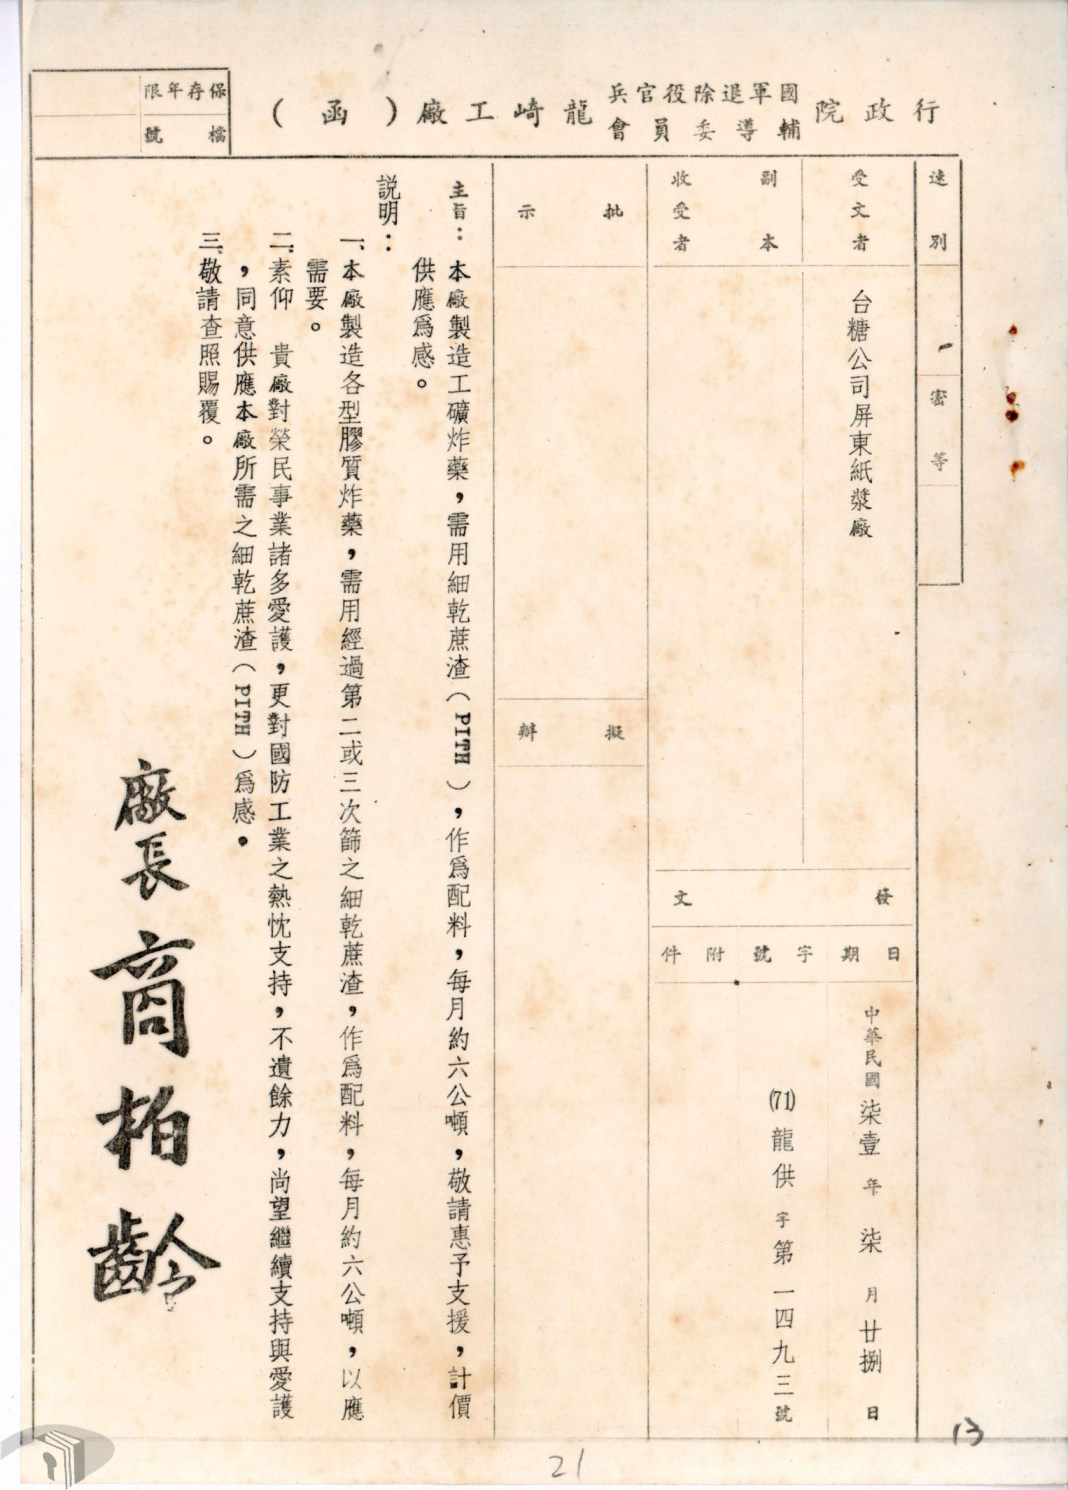 行政院國軍退除役官兵輔導委員會龍崎工廠（函）
保存年限
檔號
速別
密等
受文者
台糖公司屏東紙漿廠
副本
收受者
發文
日期
中華民國柒壹年柒月廿捌日
字號
(71)龍供字第一四九三號
附件
批示
擬辦
主旨：本廠製造工礦炸藥，需用細乾蔗渣（PITH），作爲配料，每月約六公噸，敬請惠予支援，計價
供應爲感。
説明：
一、本廠製造各型膠質炸藥，需用經過第二或三次篩之細乾蔗渣，作爲配料，每月約六公噸，以應
需要。
二、素仰　貴廠對榮民事業諸多愛護，更對國防工業之熱忱支持，不遺餘力，尚望繼續支持與愛護
，同意供應本廠所需之細乾蔗渣（PITH）爲感。
三、敬請查照賜覆。
廠長商柏齡
13
21